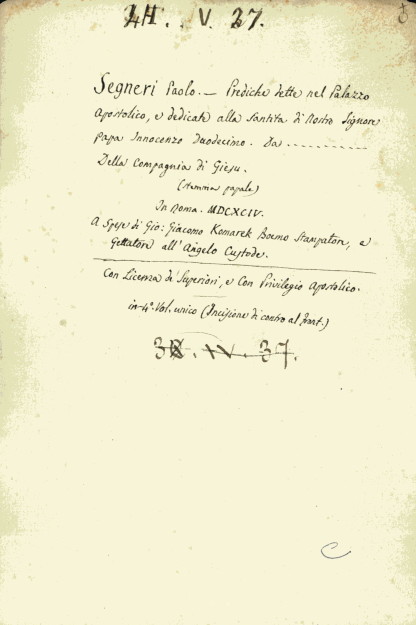 V. 37.
Segneri Paolo. — Prediche dette nel Palazzo
Apostolico, e dedicate alla Santita di Nostro Signore
Papa Innocenzo Duodecimo. Da ..........
Della Compagnia di Giesu.
(stemma papale)
In Roma. MDCXCIV.
A Spese di Gio: Giacomo Komarek Boemo Stampatore, e
Gettatore all'Angelo Custode.
Con Licenza di Superiori, e Con Privilegio Apostolico.
in-4° Vol. unico (Incisione di contro al front.)
IV. 37.
C